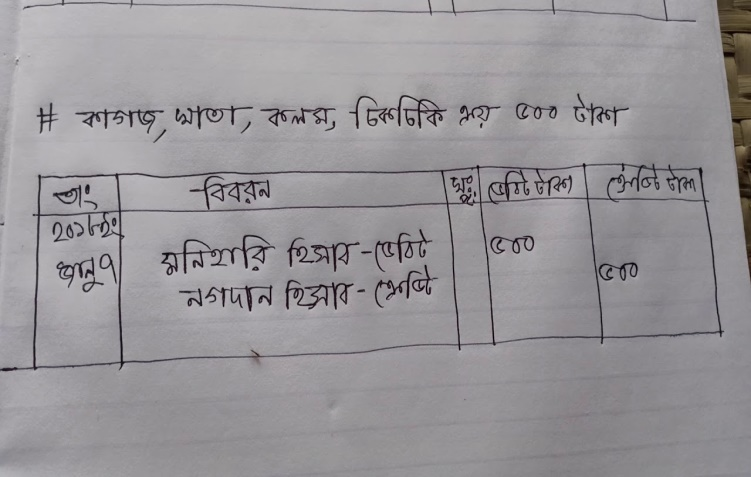 # কাগজ, খাতা, কলম, টিকটিকি ক্রয় ৫০০ টাকা
তাং বিবরন খঃ পৃঃ ডেবিট টাকা ক্রেডিট টাকা
২০১৮ইং
জানু ৭
মনিহারি হিসাব - ডেবিট ৫০০
নগদান হিসাব - ক্রেডিট ৫০০